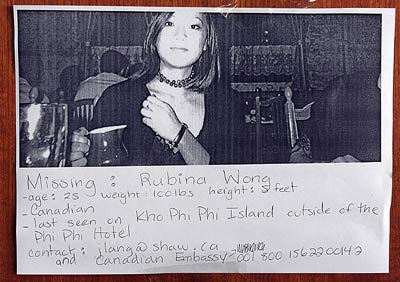 Missing : Rubina Wong
- age: 25 weight: 100lbs height: 5 feet
- Canadian
- last seen on Kho Phi Phi Island outside of the
Phi Phi Hotel
contact: jlang@shaw.ca
and Canadian Embassy - 001 800 1562200142